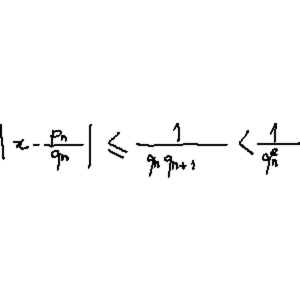 | x - \frac{p_n}{q_n} | \leqslant \frac{1}{q_n q_{n+1}} < \frac{1}{q_n^2}